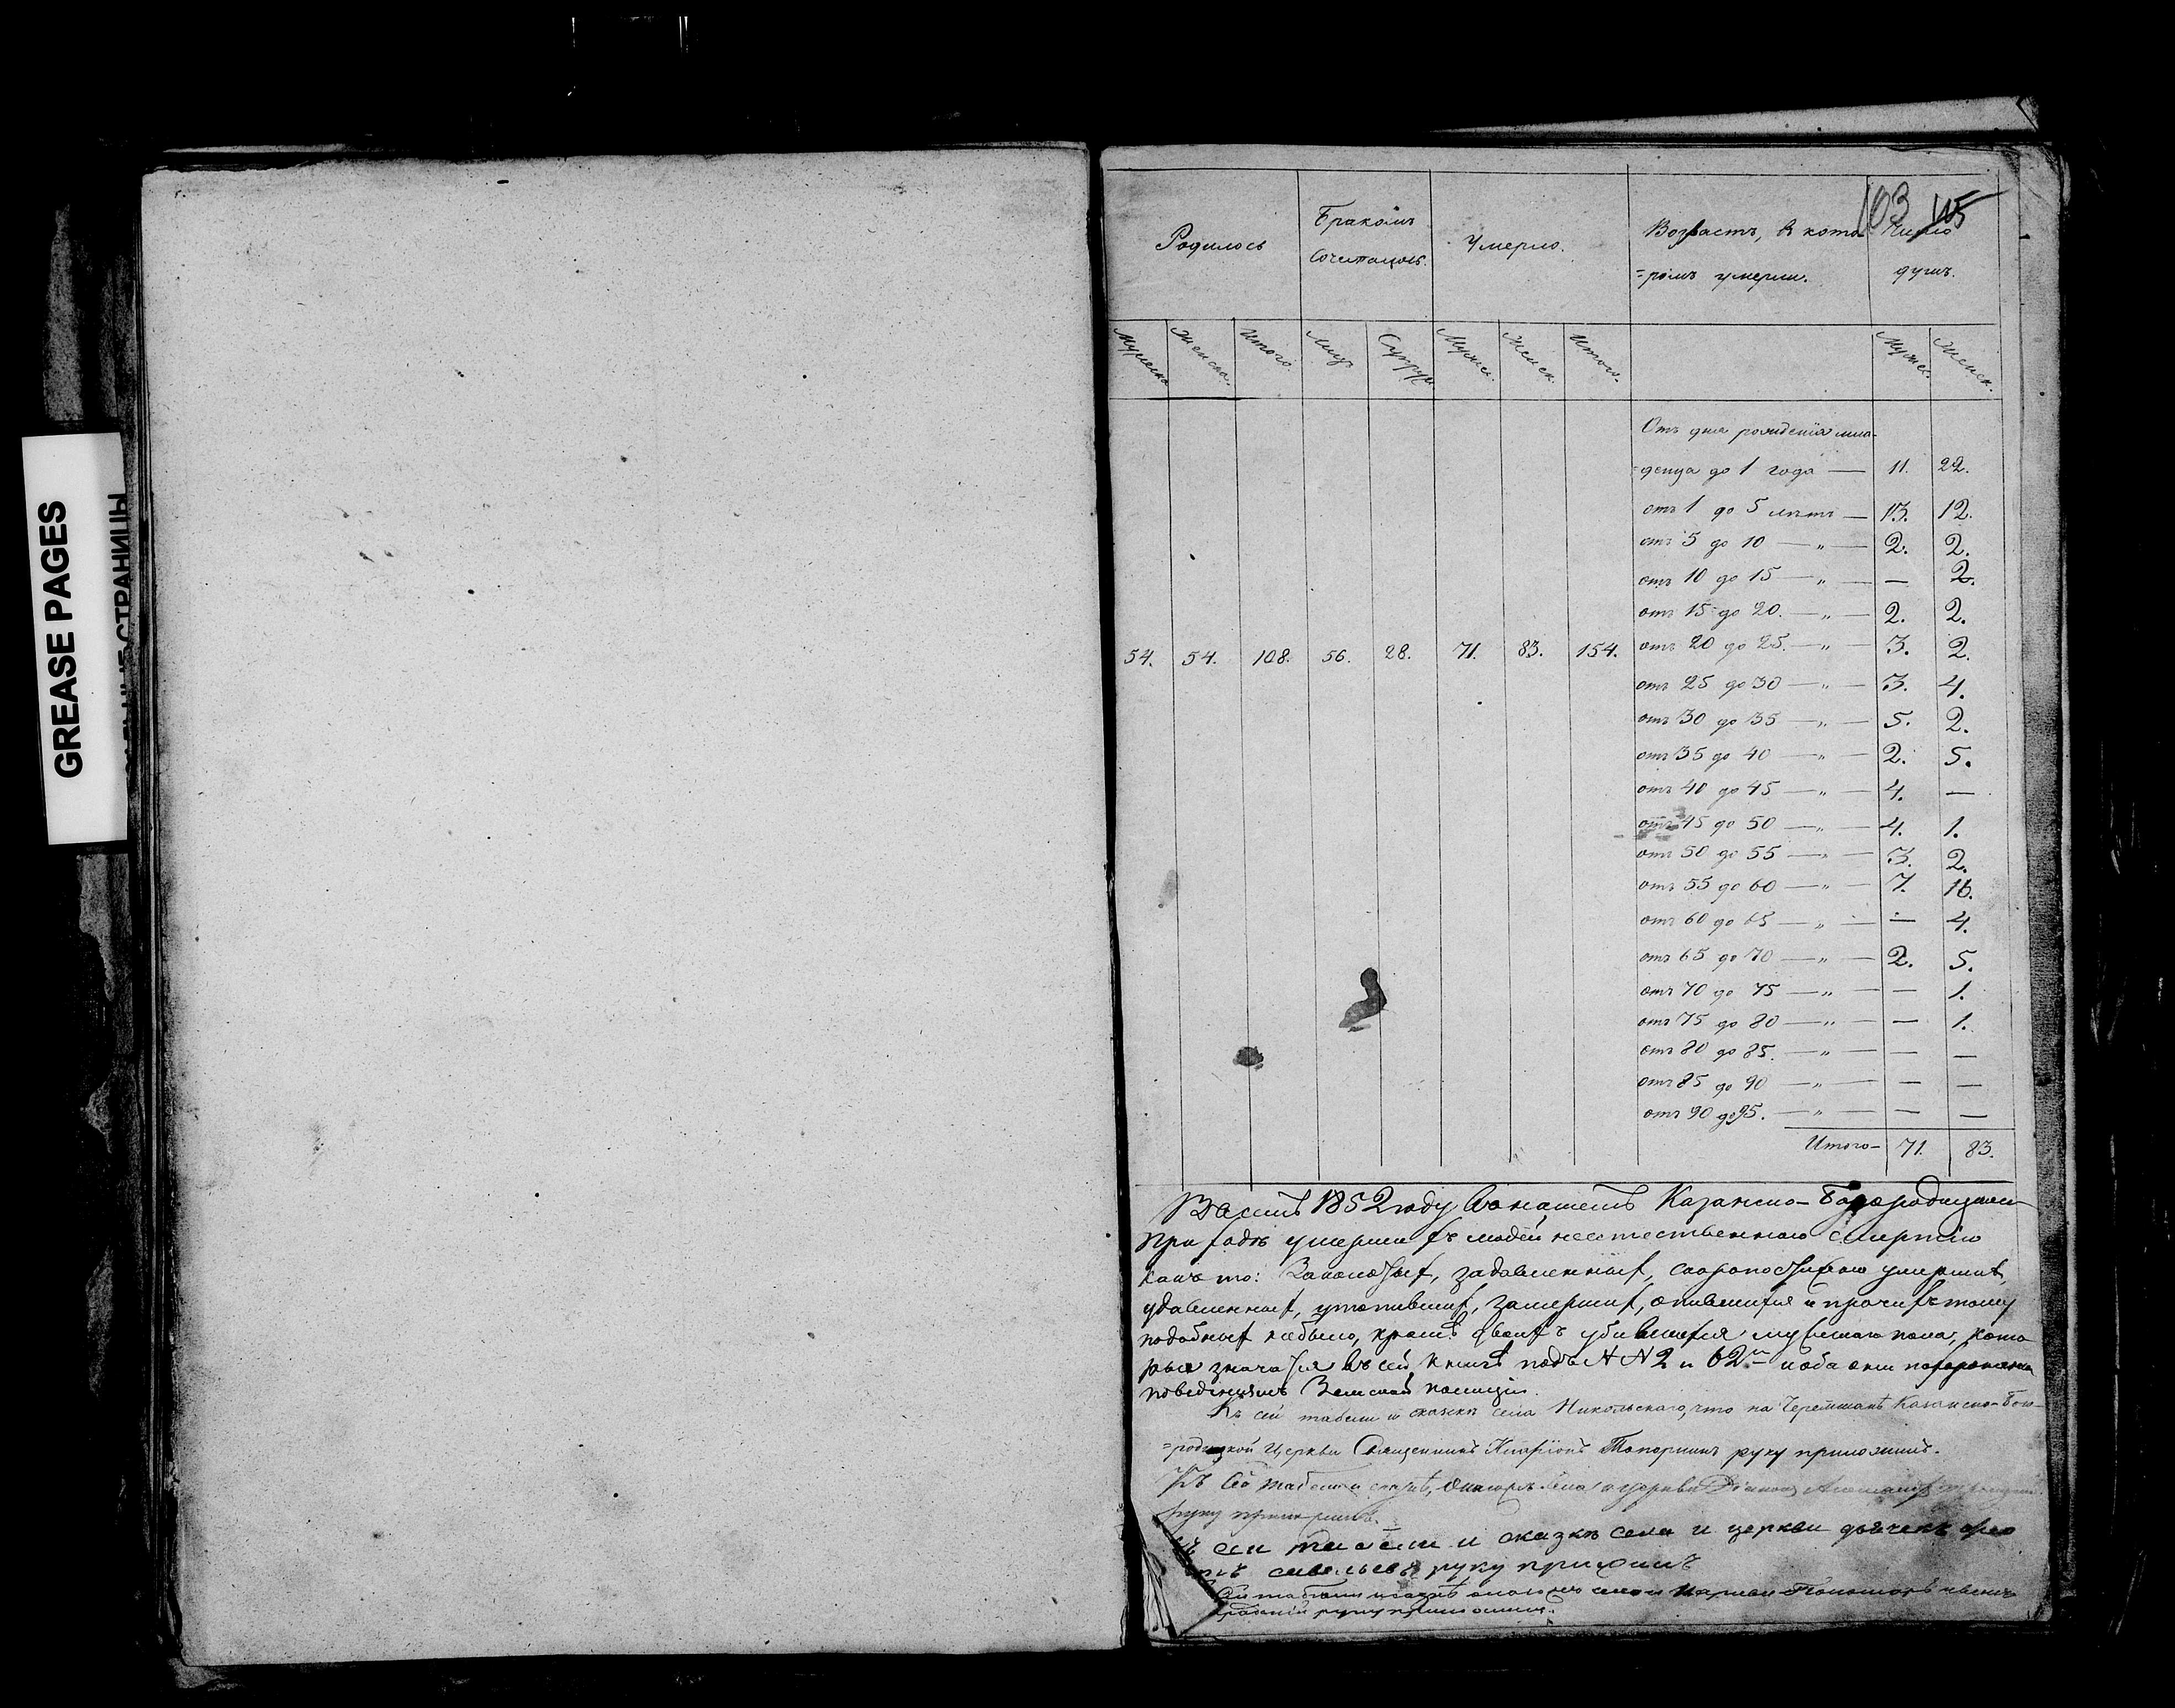 GREASE PAGES
СТРАНИЦЫ
103 115
Родилось
Бракомъ сочетавшихъ.
Умерло.
Возрастъ, въ кото=
=ромъ умерли.
Число душъ.
Мужеска Женска. Итого. Лиц Супруж. Мужск. Женск. Итого. Мужск. Женск.
Отъ дня рожденія мла-
=денца до 1 года — 11. 22.
отъ 1 до 5 лѣтъ — 13. 12.
отъ 5 до 10 — „ — 2. 2.
отъ 10 до 15 — „ — — 2.
отъ 15 до 20. — „ — 2. 2.
54. 54. 108. 56. 28. 71. 83. 154. отъ 20 до 25. — „ 3. 2.
отъ 25 до 30 — „ — 3. 4.
отъ 30 до 35 — „ — 5. 2.
отъ 35 до 40 — „ — 2. 5.
отъ 40 до 45 — „ — 4. —
отъ 45 до 50 — „ — 4. 1.
отъ 50 до 55 — „ — 3. 2.
отъ 55 до 60 — „ — 7. 16.
отъ 60 до 65 — „ — — 4.
отъ 65 до 70 — „ — 2. 5.
отъ 70 до 75 — „ — — 1.
отъ 75 до 80 — „ — — 1.
отъ 80 до 85. — „ — — —
отъ 85 до 90 — „ — — —
отъ 90 до 95. — „ — — —
Итого — 71. 83.
1852 году Казанско-Богородицкомъ
приходѣ умершихъ людей неестественною смертію
какъ то: задавленныхъ, скоропостижно умершихъ,
удавленныхъ, утопившихъ, замершихъ, опившихся и прочихъ тому
подобныхъ небыло, кромѣ двоихъ убившихся мужеска пола, кото
рые значатся въ сей книгѣ подъ NN 2 и 62 и оба они похоронены
Земской полиціи.
Къ сей табели и сказкѣ села Никольскаго, что на Черемшанѣ Казанско-Бого-
=родицкой Церкви Священникъ Иларіонъ Топорнинъ руку приложилъ.
Къ сей табели и сказкѣ, церкви Діаконъ
руку приложилъ.
сей табели и сказкѣ села и церкви дьячекъ
савельевъ руку приложилъ
Сей табели и сказкѣ села и церкви Пономарь
руку приложилъ.